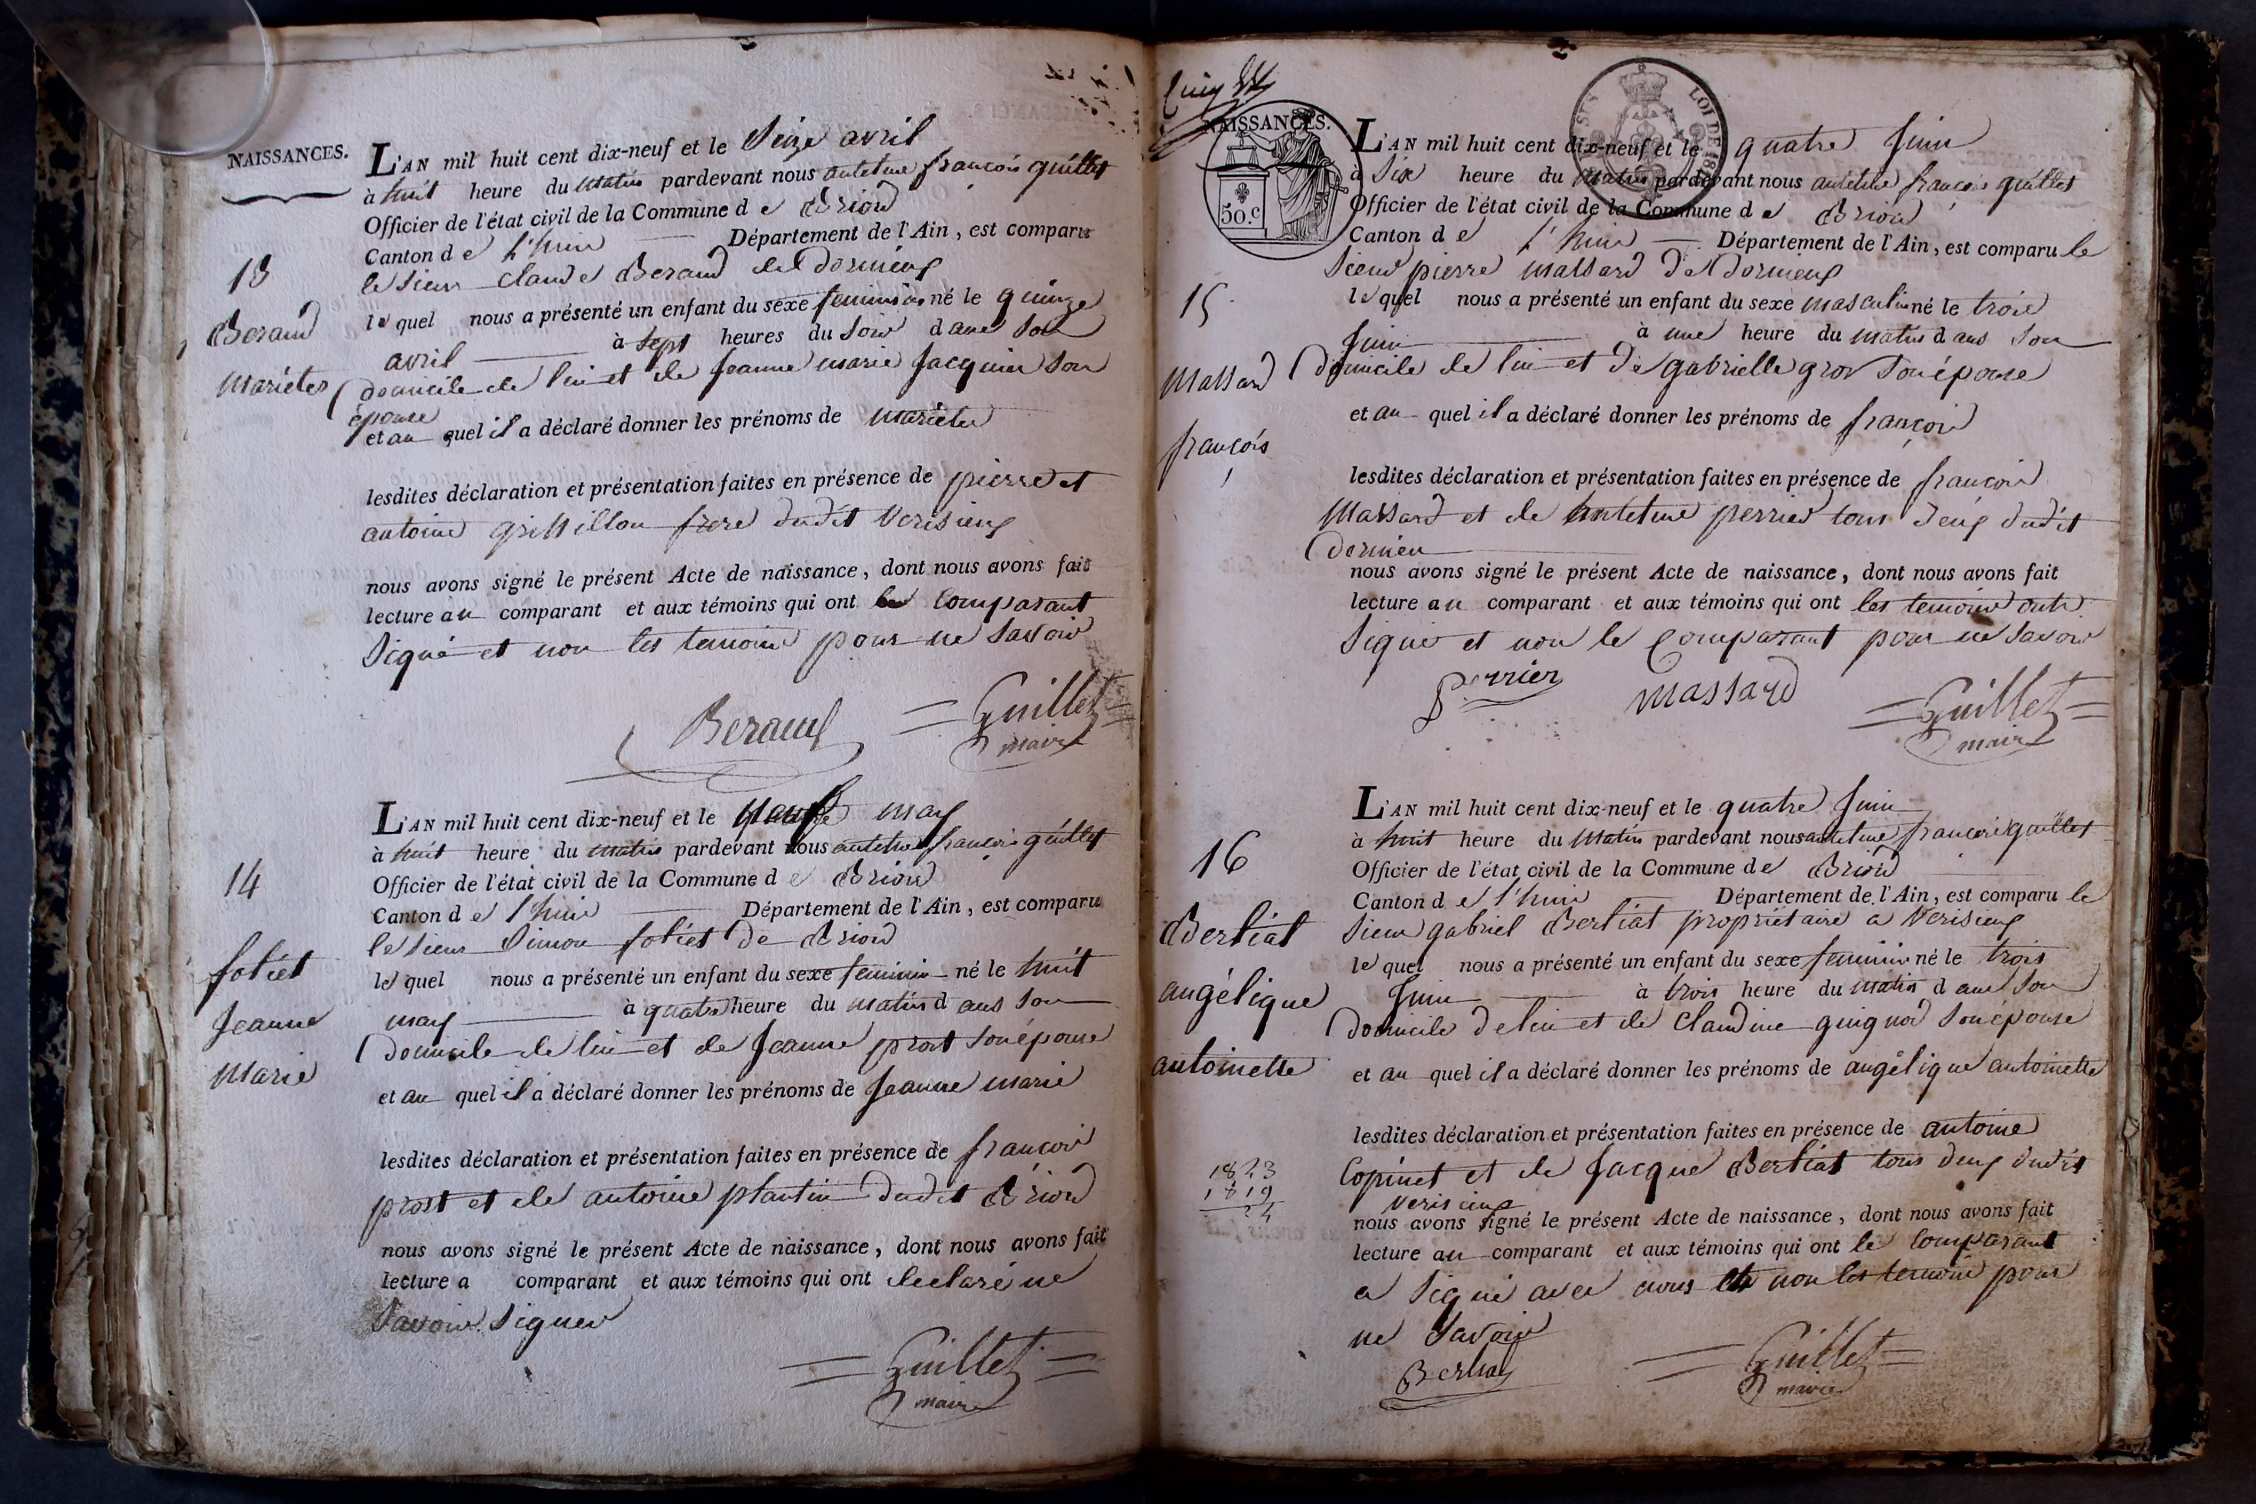 NAISSANCES.
L'AN mil huit cent dix-neuf et le Seize avril
à huit heure du matin pardevant nous antelme françois guillet
Officier de l'état civil de la Commune d e Briord
Canton d e l'huis Département de l'Ain, est comparu
le Sieur claude Beraud de dornieux
le quel nous a présenté un enfant du sexe feminin né le quinze
avril à sept heures du Soir dans Son
domicile de lui et de Jeanne marie Jacquin Son
épouse
et au quel il a déclaré donner les prénoms de mariete
lesdites déclaration et présentation faites en présence de pierre et
antoine grissillon frere dudit Verisieux
nous avons signé le présent Acte de naissance, dont nous avons fait
lecture au comparant et aux témoins qui ont le Comparant
Signé et non les temoins pour ne Savoir
Beraud
Guillet
maire
13
Beraud
mariete
L'AN mil huit cent dix-neuf et le may
à huit heure du matin pardevant nous antelme françois guillet
Officier de l'état civil de la Commune d e Briord
Canton d e l'huis Département de l'Ain, est comparu
le Sieur Simon foliet de Briord
le quel nous a présenté un enfant du sexe feminin né le huit
may à quatre heure du matin d ans Son
domicile de lui et de Jeanne prost Son épouse
et au quel il a déclaré donner les prénoms de Jeanne marie
lesdites déclaration et présentation faites en présence de françois
prost et de antoine plantin dudit Briord
nous avons signé le présent Acte de naissance, dont nous avons fait
lecture a comparant et aux témoins qui ont declaré ne
Savoir Signer
Guillet
maire
14
foliet
Jeanne
Marie
NAISSANCES.
50.c
LOI DE 18
L'AN mil huit cent dix-neuf et le quatre Juin
à Six heure du matin pardevant nous antelme françois guillet
Officier de l'état civil de la Commune d e Briord
Canton d e l'huis Département de l'Ain, est comparu le
Sieur pierre massard de dornieux
le quel nous a présenté un enfant du sexe masculin né le trois
Juin à une heure du matin d ans Son
domicile de lui et de gabrielle gros Son épouse
et au quel il a déclaré donner les prénoms de françois
lesdites déclaration et présentation faites en présence de françois
Massard et de Antelme perrier tous deux dudit
dornieu
nous avons signé le présent Acte de naissance, dont nous avons fait
lecture au comparant et aux témoins qui ont les temoins ont
Signé et non le Comparant pour ne Savoir
Perrier
massard
Guillet
maire
15
Massard
françois
L'AN mil huit cent dix-neuf et le quatre Juin
à huit heure du matin pardevant nous antelme françois guillet
Officier de l'état civil de la Commune d e Briord
Canton d e l'huis Département de l'Ain, est comparu le
Sieur gabriel Berliat propriétaire a Verisieux
le quel nous a présenté un enfant du sexe feminin né le trois
Juin à trois heure du matin d ans Son
domicile de lui et de Claudine guignod Son épouse
et au quel il a déclaré donner les prénoms de angélique antoinette
lesdites déclaration et présentation faites en présence de antoine
Copinet et de Jacque Berliat tous deux dudit
verisieux
nous avons signé le présent Acte de naissance, dont nous avons fait
lecture au comparant et aux témoins qui ont le Comparant
a Signé avec nous et non les temoins pour
ne Savoir
Berliat
Guillet
maire
16
Berliat
angélique
antoinette
1823
1819
24